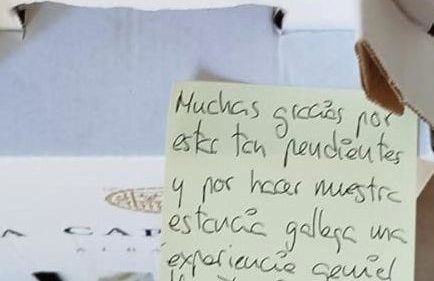 Muchas gracias por
estar tan pendientes
y por hacer nuestra
estancia gallega una
experiencia genial
A CAP